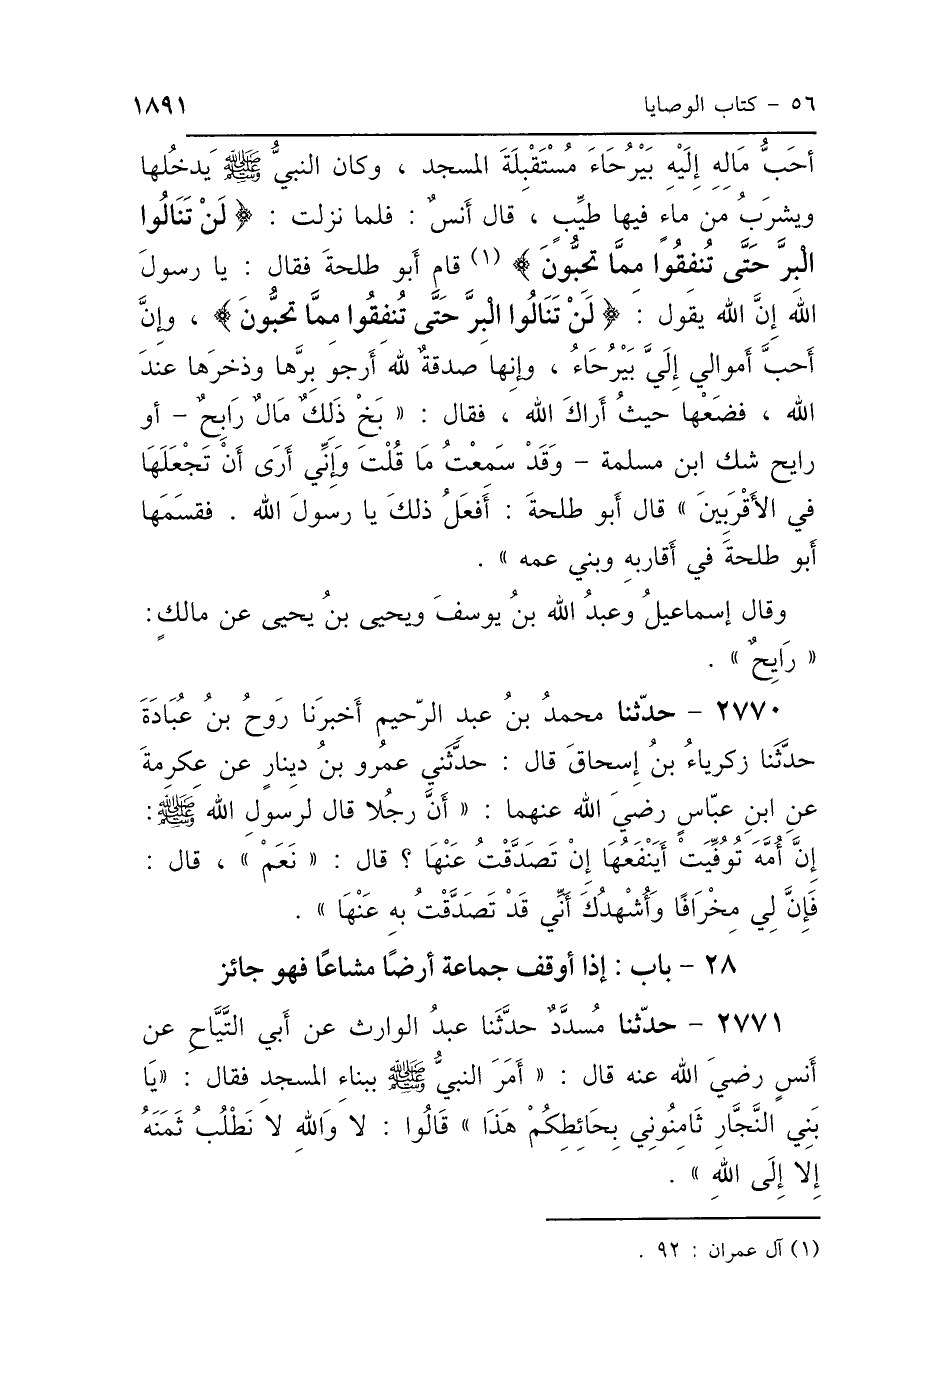 ٥٦ - كتاب الوصايا ١٨٩١
أحَبُّ مَالِه إِلَيْهِ بَيْرُحَاءَ مُسْتَقْبِلَةَ المسجد ، وكان النبيُّ ﷺ يَدخُلها
ويشرَبُ من ماءٍ فيها طيِّبٍ ، قال أَنسٌ : فلما نزلت : ﴿ لَنْ تَنَالُوا
الْبِرَّ حَتَّى تُنفِقُوا مِمَّا تُحِبُّونَ ﴾ (١) قام أبو طلحةَ فقال : يا رسولَ
الله إنَّ الله يقول : ﴿ لَنْ تَنَالُوا الْبِرَّ حَتَّى تُنفِقُوا مِمَّا تُحِبُّونَ ﴾ ، وإنَّ
أَحبَّ أموالي إِلَيَّ بَيْرُحَاءُ ، وإنها صدقةٌ لله أرجو بِرَّها وذخرَها عندَ
الله ، فضَعْها حيثُ أَراكَ الله ، فقال : « بَخْ ذَلِكَ مَالٌ رَابِحٌ - أو
رايح شك ابن مسلمة - وَقَدْ سَمِعْتُ مَا قُلْتَ وَإِنِّي أَرَى أَنْ تَجْعَلَهَا
فِي الأَقْرَبِينَ » قال أَبو طلحةَ : أَفعَلُ ذلكَ يا رسولَ الله . فقسَمَها
أَبو طلحةَ في أَقاربِه وبني عمه » .
وقال إسماعيلُ وعبدُ الله بنُ يوسفَ ويحيى بنُ يحيى عن مالكٍ:
« رَايِحٌ » .
٢٧٧٠ - حدّثنا محمدُ بنُ عبدِ الرّحيمِ أَخبرَنا رَوحُ بنُ عُبَادَةَ
حدَّثَنا زكرياءُ بنُ إسحاقَ قال : حدَّثَني عمُرو بنُ دينارٍ عن عِكرِمةَ
عنِ ابنِ عبّاسٍ رضيَ الله عنهما : « أَنَّ رجُلا قال لرسولِ الله ﷺ:
إِنَّ أُمَّهَ تُوفِّيَتْ أَيَنْفَعُهَا إِنْ تَصَدَّقْتُ عَنْهَا ؟ قال : « نَعَمْ » ، قال :
فَإِنَّ لِي مِخْرَافًا وَأُشْهِدُكَ أَنِّي قَدْ تَصَدَّقْتُ بِهِ عَنْهَا » .
٢٨ - باب : إذا أوقف جماعة أرضًا مشاعًا فهو جائز
٢٧٧١ - حدّثنا مُسدَّدٌ حدَّثَنا عبدُ الوارث عن أَبي التَّيَّاحِ عن
أَنسٍ رضيَ الله عنه قال : « أَمَرَ النبيُّ ﷺ ببناءِ المسجدِ فقال : «يَا
بَنِي النَّجَّارِ ثَامِنُونِي بِحَائِطِكُمْ هَذَا » قَالُوا : لا وَاللهِ لا نَطْلُبُ ثَمَنَهُ
إِلا إِلَى اللهِ » .
(١) آل عمران : ٩٢ .